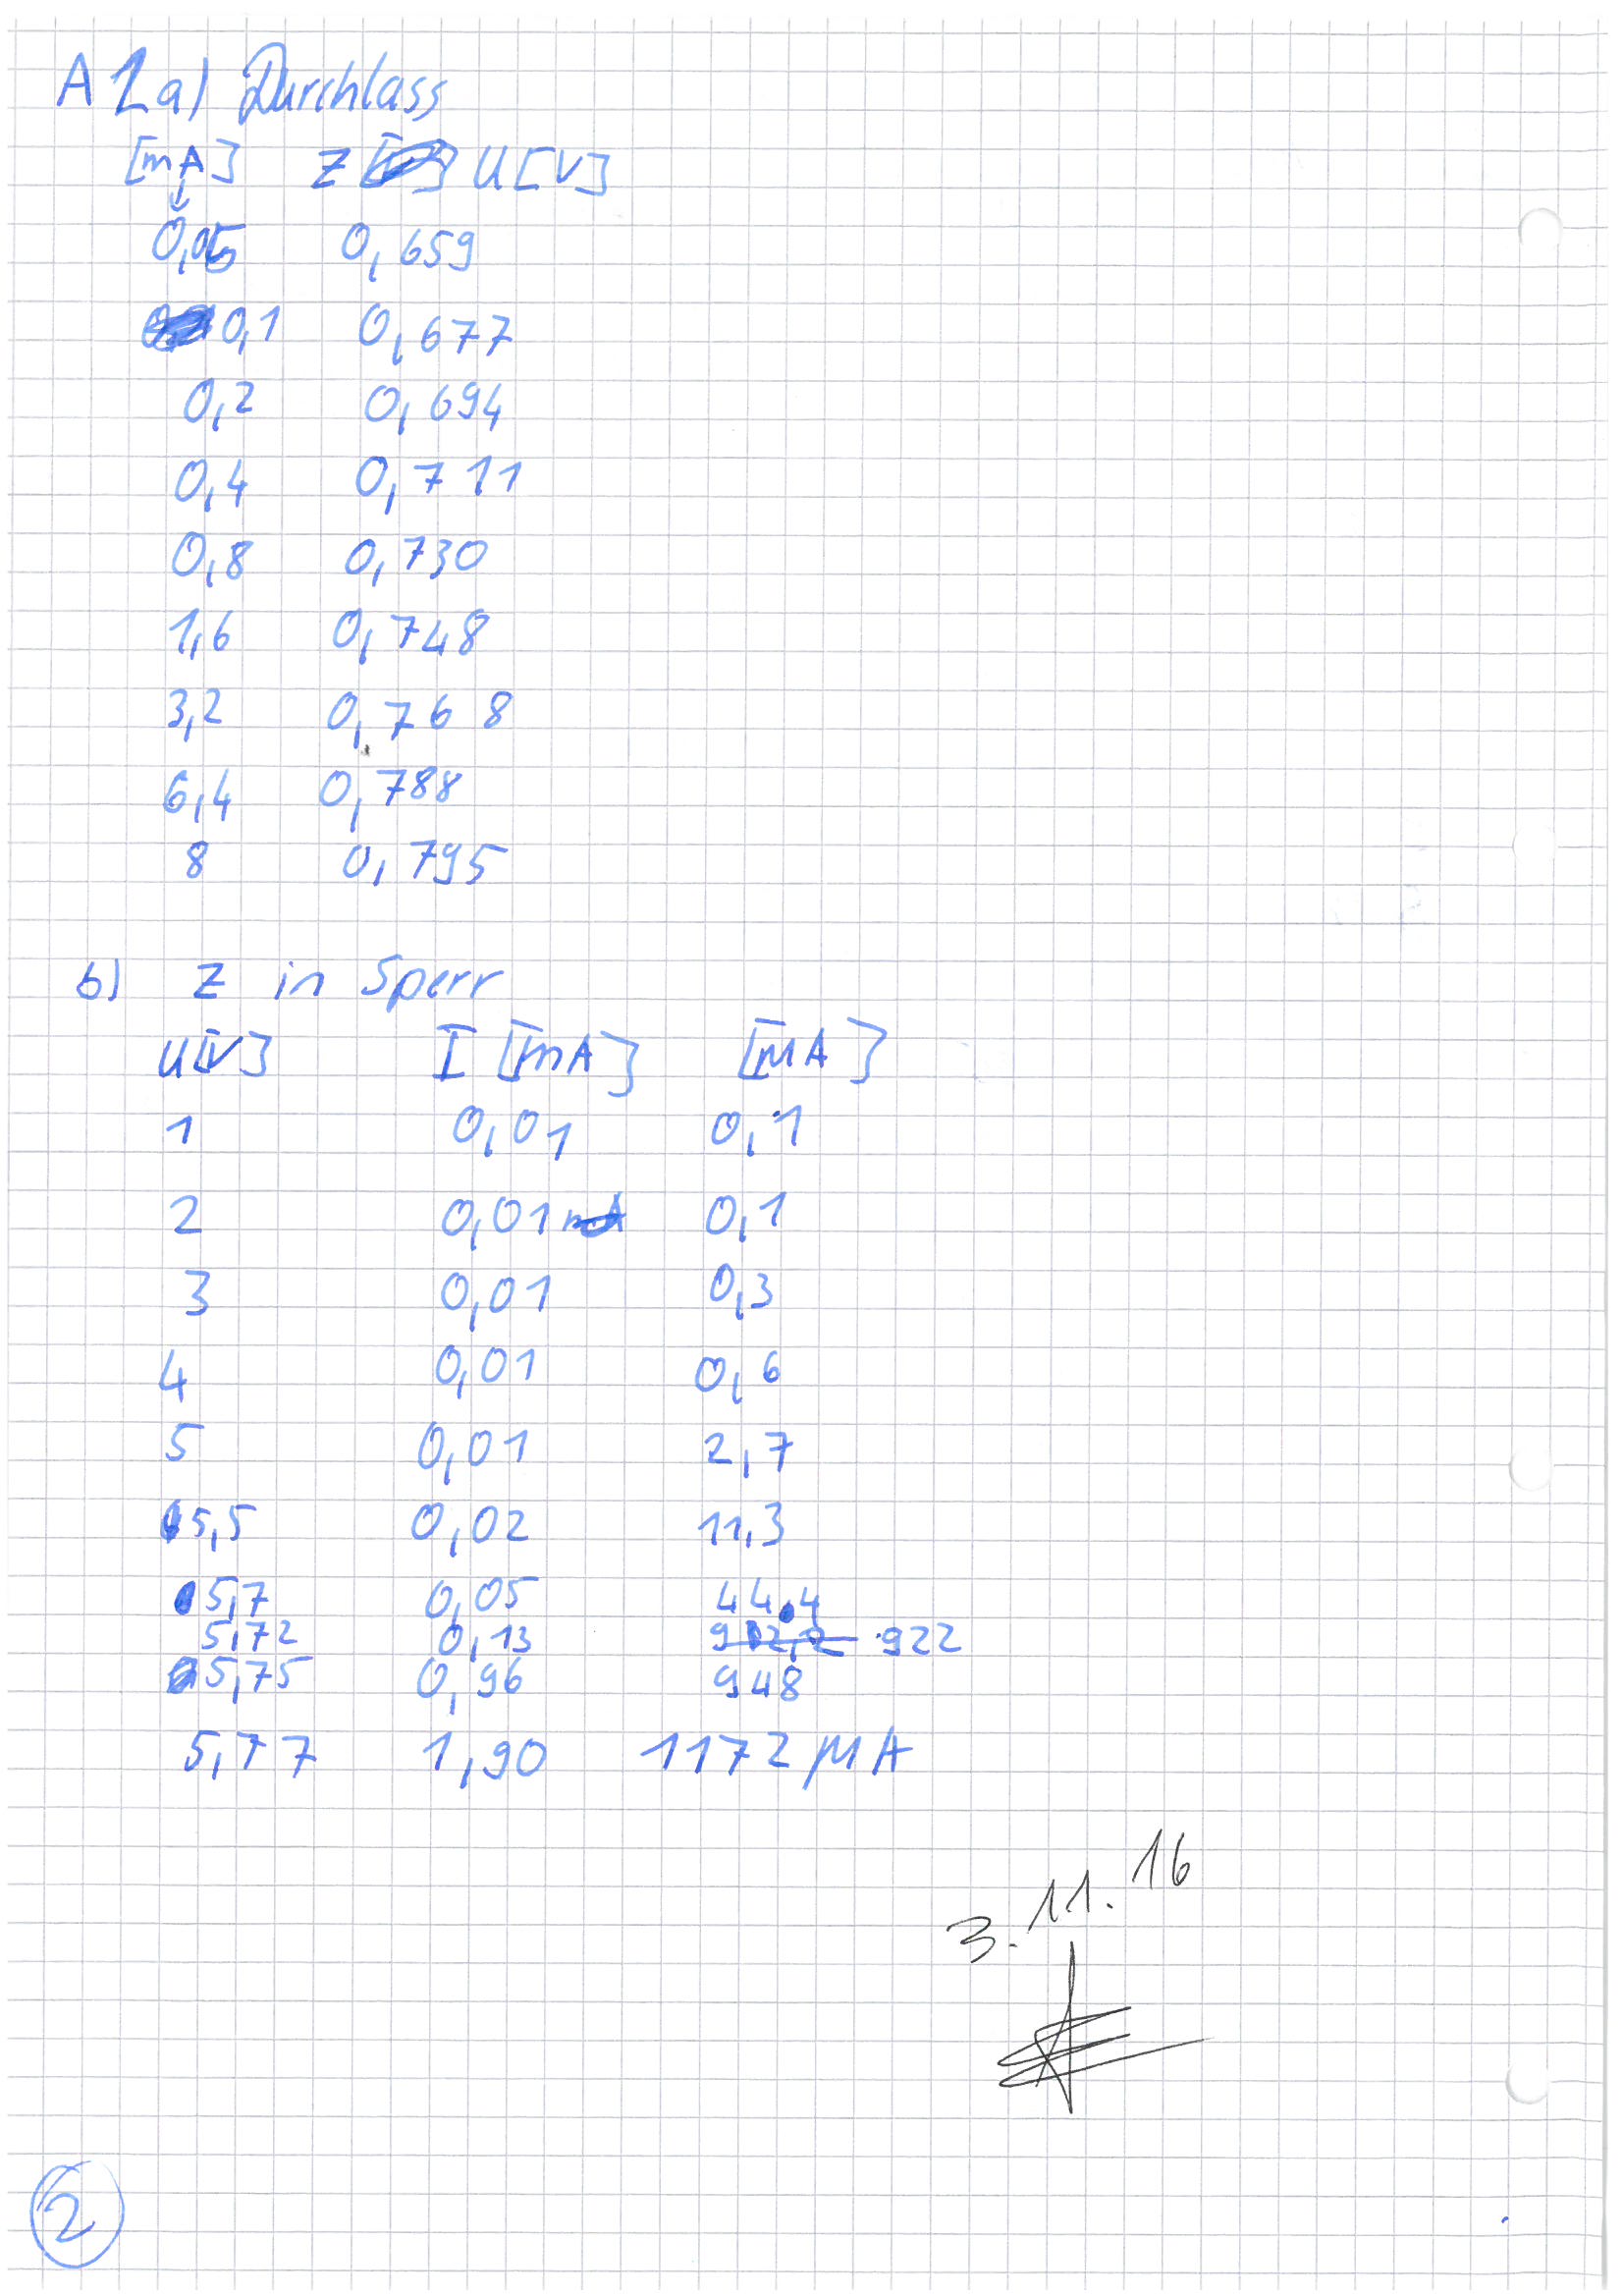 A 1 a) Durchlass
[mA] Z U[V]
0,05 0,659
0,1 0,677
0,2 0,694
0,4 0,711
0,8 0,730
1,6 0,748
3,2 0,768
6,4 0,788
8 0,795
b) Z in Sperr
U[V] I [mA] [µA]
1 0,01 0,1
2 0,01 mA 0,1
3 0,01 0,3
4 0,01 0,6
5 0,01 2,7
5,5 0,02 11,3
5,7 0,05 44.4
5,72 0,13 922
5,75 0,96 948
5,77 1,90 1172 µA
3.11.16
2